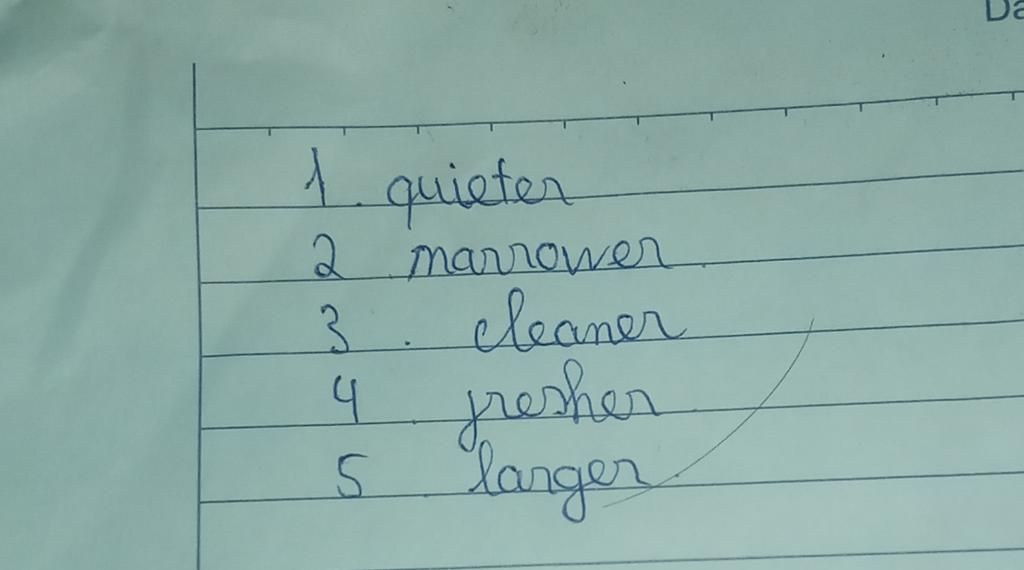 Da
1. quieter
2. marrower
3. cleaner
4. fresher
5. larger